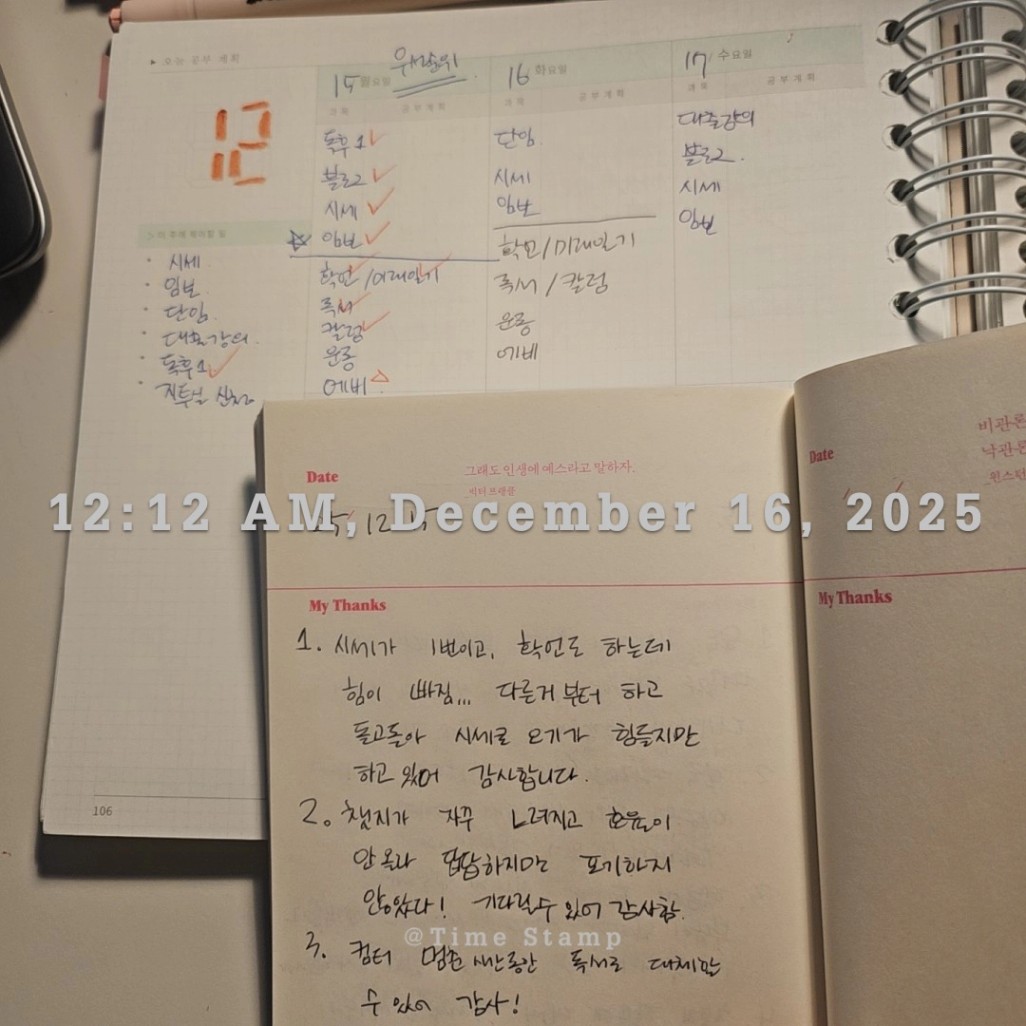 ▸ 오늘 공부 계획
12
15 월요일 우선순위
과목 공부계획
독후1 ✓
블로그 ✓
시세 ✓
☆ 임보 ✓
학언/미래일기
독서
칼럼 ✓
운동
에버 △
16 화요일
과목 공부계획
단임
시세
임보
학언/미래일기
독서 / 칼럼
운동
에버
17 수요일
과목 공부계획
대출강의
시세
임보
시세
임보
단임
대출강의
독후1 ✓
106
Date
그래도 인생에 예스라고 말하자.
_빅터 프랭클
12:12 AM, December 16, 2025
My Thanks
1. 시세가 1번이고, 확언도 하는데
힘이 빠짐... 다른거부터 하고
돌고돌아 시세로 오기가 힘들지만
하고 있어 감사합니다.
2. 챗지가 자꾸 느려지고 효율이
안올라 답답하지만 포기하지
않았다! 기다릴수 있어 감사함.
@Time Stamp
3. 컴터 멈춘 시간동안 독서로 대체할
수 있어 감사!
Date
비관론
낙관론
_윈스턴
My Thanks